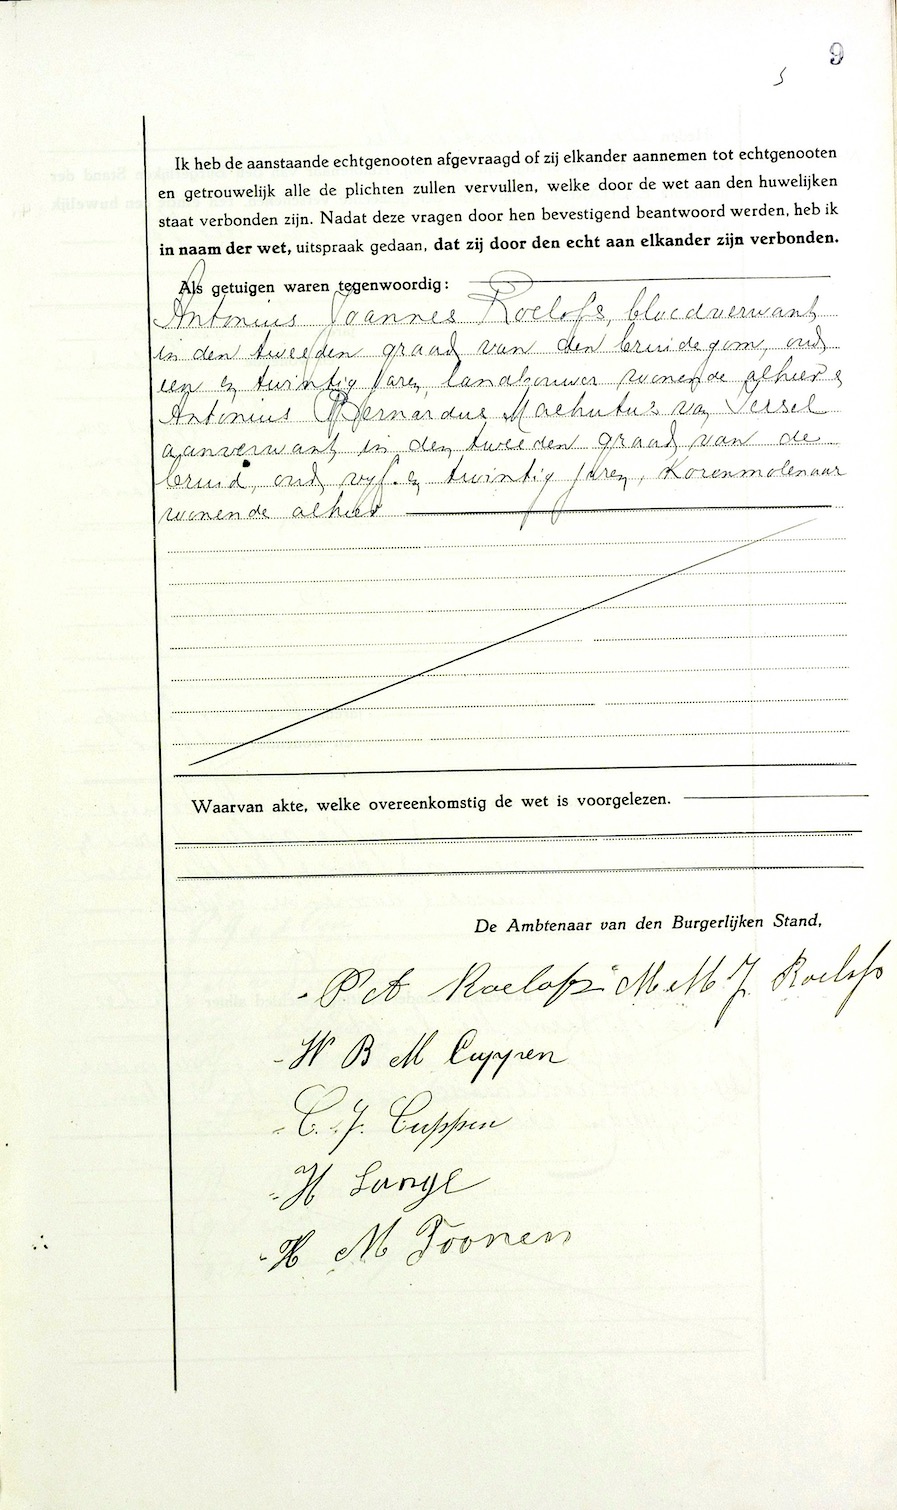 9
5
Ik heb de aanstaande echtgenooten afgevraagd of zij elkander aannemen tot echtgenooten
en getrouwelijk alle de plichten zullen vervullen, welke door de wet aan den huwelijken
staat verbonden zijn. Nadat deze vragen door hen bevestigend beantwoord werden, heb ik
in naam der wet, uitspraak gedaan, dat zij door den echt aan elkander zijn verbonden.
Als getuigen waren tegenwoordig:
Antonius Joannes Roelofs, bloedverwant
in den tweeden graad van den bruidegom, oud
een en twintig jaren, landbouwer wonende alhier en
Antonius Bernardus Machutus van Iersel
aanverwant in den tweeden graad van de
bruid, oud vijf en twintig jaren, Korenmolenaar
wonende alhier
Waarvan akte, welke overeenkomstig de wet is voorgelezen.
De Ambtenaar van den Burgerlijken Stand,
P A Roelofs M M J Roelofs
W B M Cuppen
C. J. Cuppen
H Lange
H M Toonen